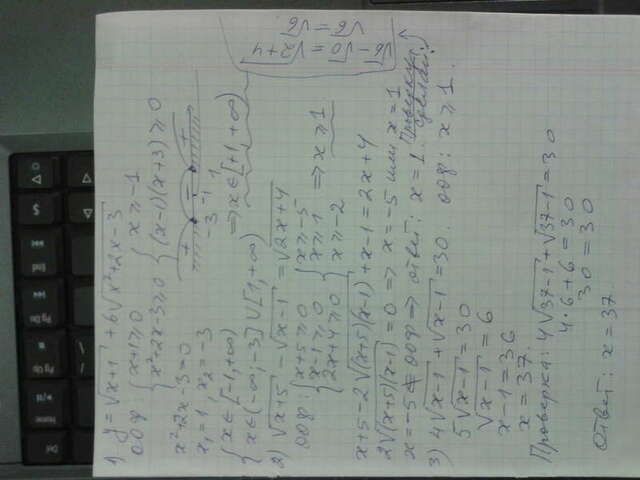 1) y = √x+1 + 6√x²+2x-3
ООФ: { x+1≥0 { x≥-1
x²+2x-3≥0 (x-1)(x+3)≥0
x²+2x-3=0
x₁=1, x₂=-3
+ - +
-3 -1 1
{ x∈[-1,+∞)
x∈(-∞;-3]∪[1,+∞) ⇒ x∈[+1,+∞)
2) √x+5 - √x-1 = √2x+4
ООФ: { x+5≥0 { x≥-5
x-1≥0 x≥1 ⇒ x≥1
2x+4≥0 x≥-2
x+5-2√(x+5)(x-1)+x-1=2x+4
2√(x+5)(x-1)=0 ⇒ x=-5 или x=1
x=-5 ∉ ООФ ⇒ ответ: x=1. Проверку сделай!
√6-√0=√2+4
√6=√6
3) 4√x-1 + √x-1 = 30. ООФ: x≥1.
5√x-1 = 30
√x-1 = 6
x-1=36
x=37.
Проверка: 4√37-1 + √37-1 = 30
4·6+6=30
30=30
Ответ: x=37.
Home
End
Pg Up
Pg Dn
$